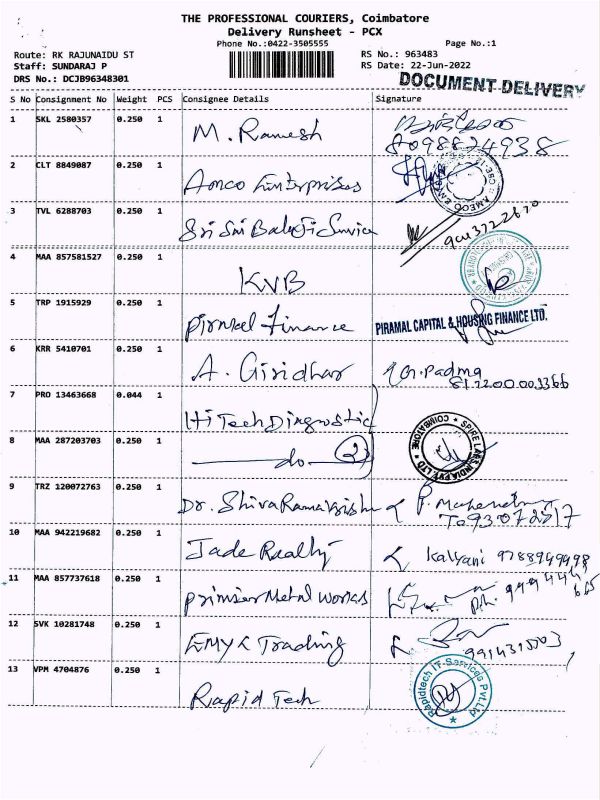 THE PROFESSIONAL COURIERS, Coimbatore
Delivery Runsheet - PCX
Phone No.:0422-3505555 Page No.:1
Route: RK RAJUNAIDU ST RS No.: 963483
Staff: SUNDARAJ P RS Date: 22-Jun-2022
DRS No.: DCJB96348301 DOCUMENT DELIVERY
S No Consignment No Weight PCS Consignee Details Signature
1 SKL 2580357 0.250 1 M. Ramesh
8098824938
2 CLT 8849087 0.250 1 Amco Enterprises
3 TVL 6288703 0.250 1 Sri Sai Balaji Service
4 MAA 857581527 0.250 1 KVB
5 TRP 1915929 0.250 1 Pirmeel Finance PIRAMAL CAPITAL & HOUSING FINANCE LTD.
6 KRR 5410701 0.250 1 A. Giridhar G. Padma
7 PRO 13463668 0.044 1 Hi Tech Diagnostic
8 MAA 287203703 0.250 1 do 2 SPIRE LABS INDIA PVT LTD COIMBATORE
9 TRZ 120072763 0.250 1 Dr. Shiva Ramakrishn
10 MAA 942219682 0.250 1 Jade Realty Kalyani
11 MAA 857737618 0.250 1 Primier Metal Works
12 SVK 10281748 0.250 1 EMYK Trading
13 VPM 4704876 0.250 1 Rapid Tech Rapidtech IT-Services Pvt.Ltd